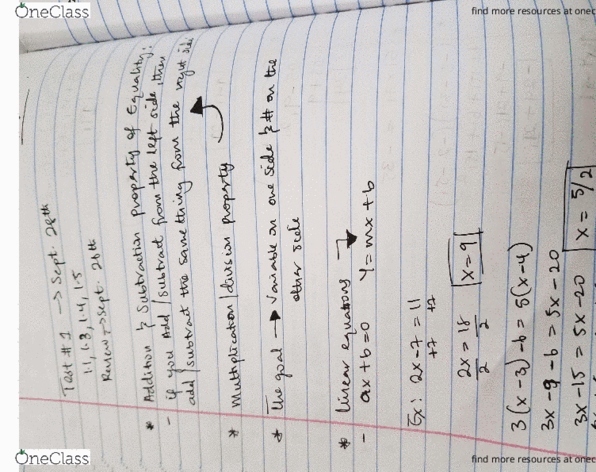 OneClass
find more resources at onec
Test #1 → Sept. 28th
1.1, 1.3, 1.4, 1.5
Review → Sept. 26th
* Addition & Subtraction property of Equality:
- if you Add/subtract from the left side, then
add/subtract the same thing from the right side
* Multiplication/division property
* The goal → Variable on one side & # on the
other side
* linear equations →
- ax+b=0 y=mx+b
Ex: 2x-7=11
+7 +7
2x=18
2 2
x=9
3(x-3)-6=5(x-4)
3x-9-6=5x-20
3x-15=5x-20
x=5/2
OneClass
find more resources at onec